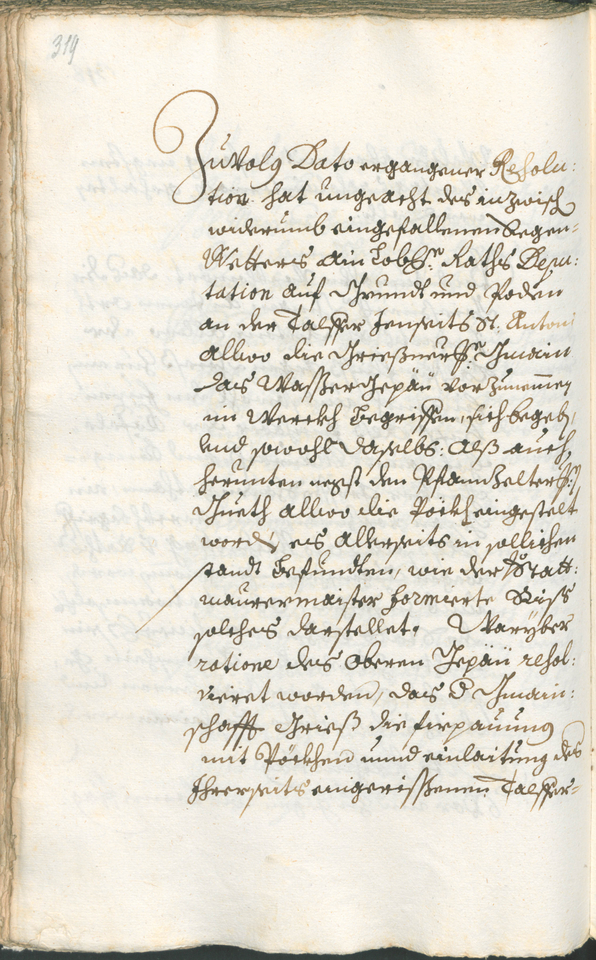 319
Zuvolg Dato ergangener Resolu:
tion. hat ungeacht des inzwisch
widerumb eingefallenen Regen-
Wetters ain Lobl: Raths Depu:
tation auf Grundt und Poden
an der Talffer Jenseits St. Antoni
allwo die Grießner Gmain
das Wasser Gepäu vorzunemmen
im Werckh begriffen, sich begeb,
und sowohl daselbs: alß auch
herunten negst den Pfanzelter
Gueth allwo die Pöckh eingestelt
worden, es allerseits in sollichen
standt befundten, wie der Statt:
maurermaister formierte Riss
solches darstellet. Waryber
ratione des oberen Gepäu resol-
vieret worden, das d Gmain:
schafft Grieß die firpauung
mit Pöckhen unnd einlaitung des
Ihrerseits eingerissenen Talffer-